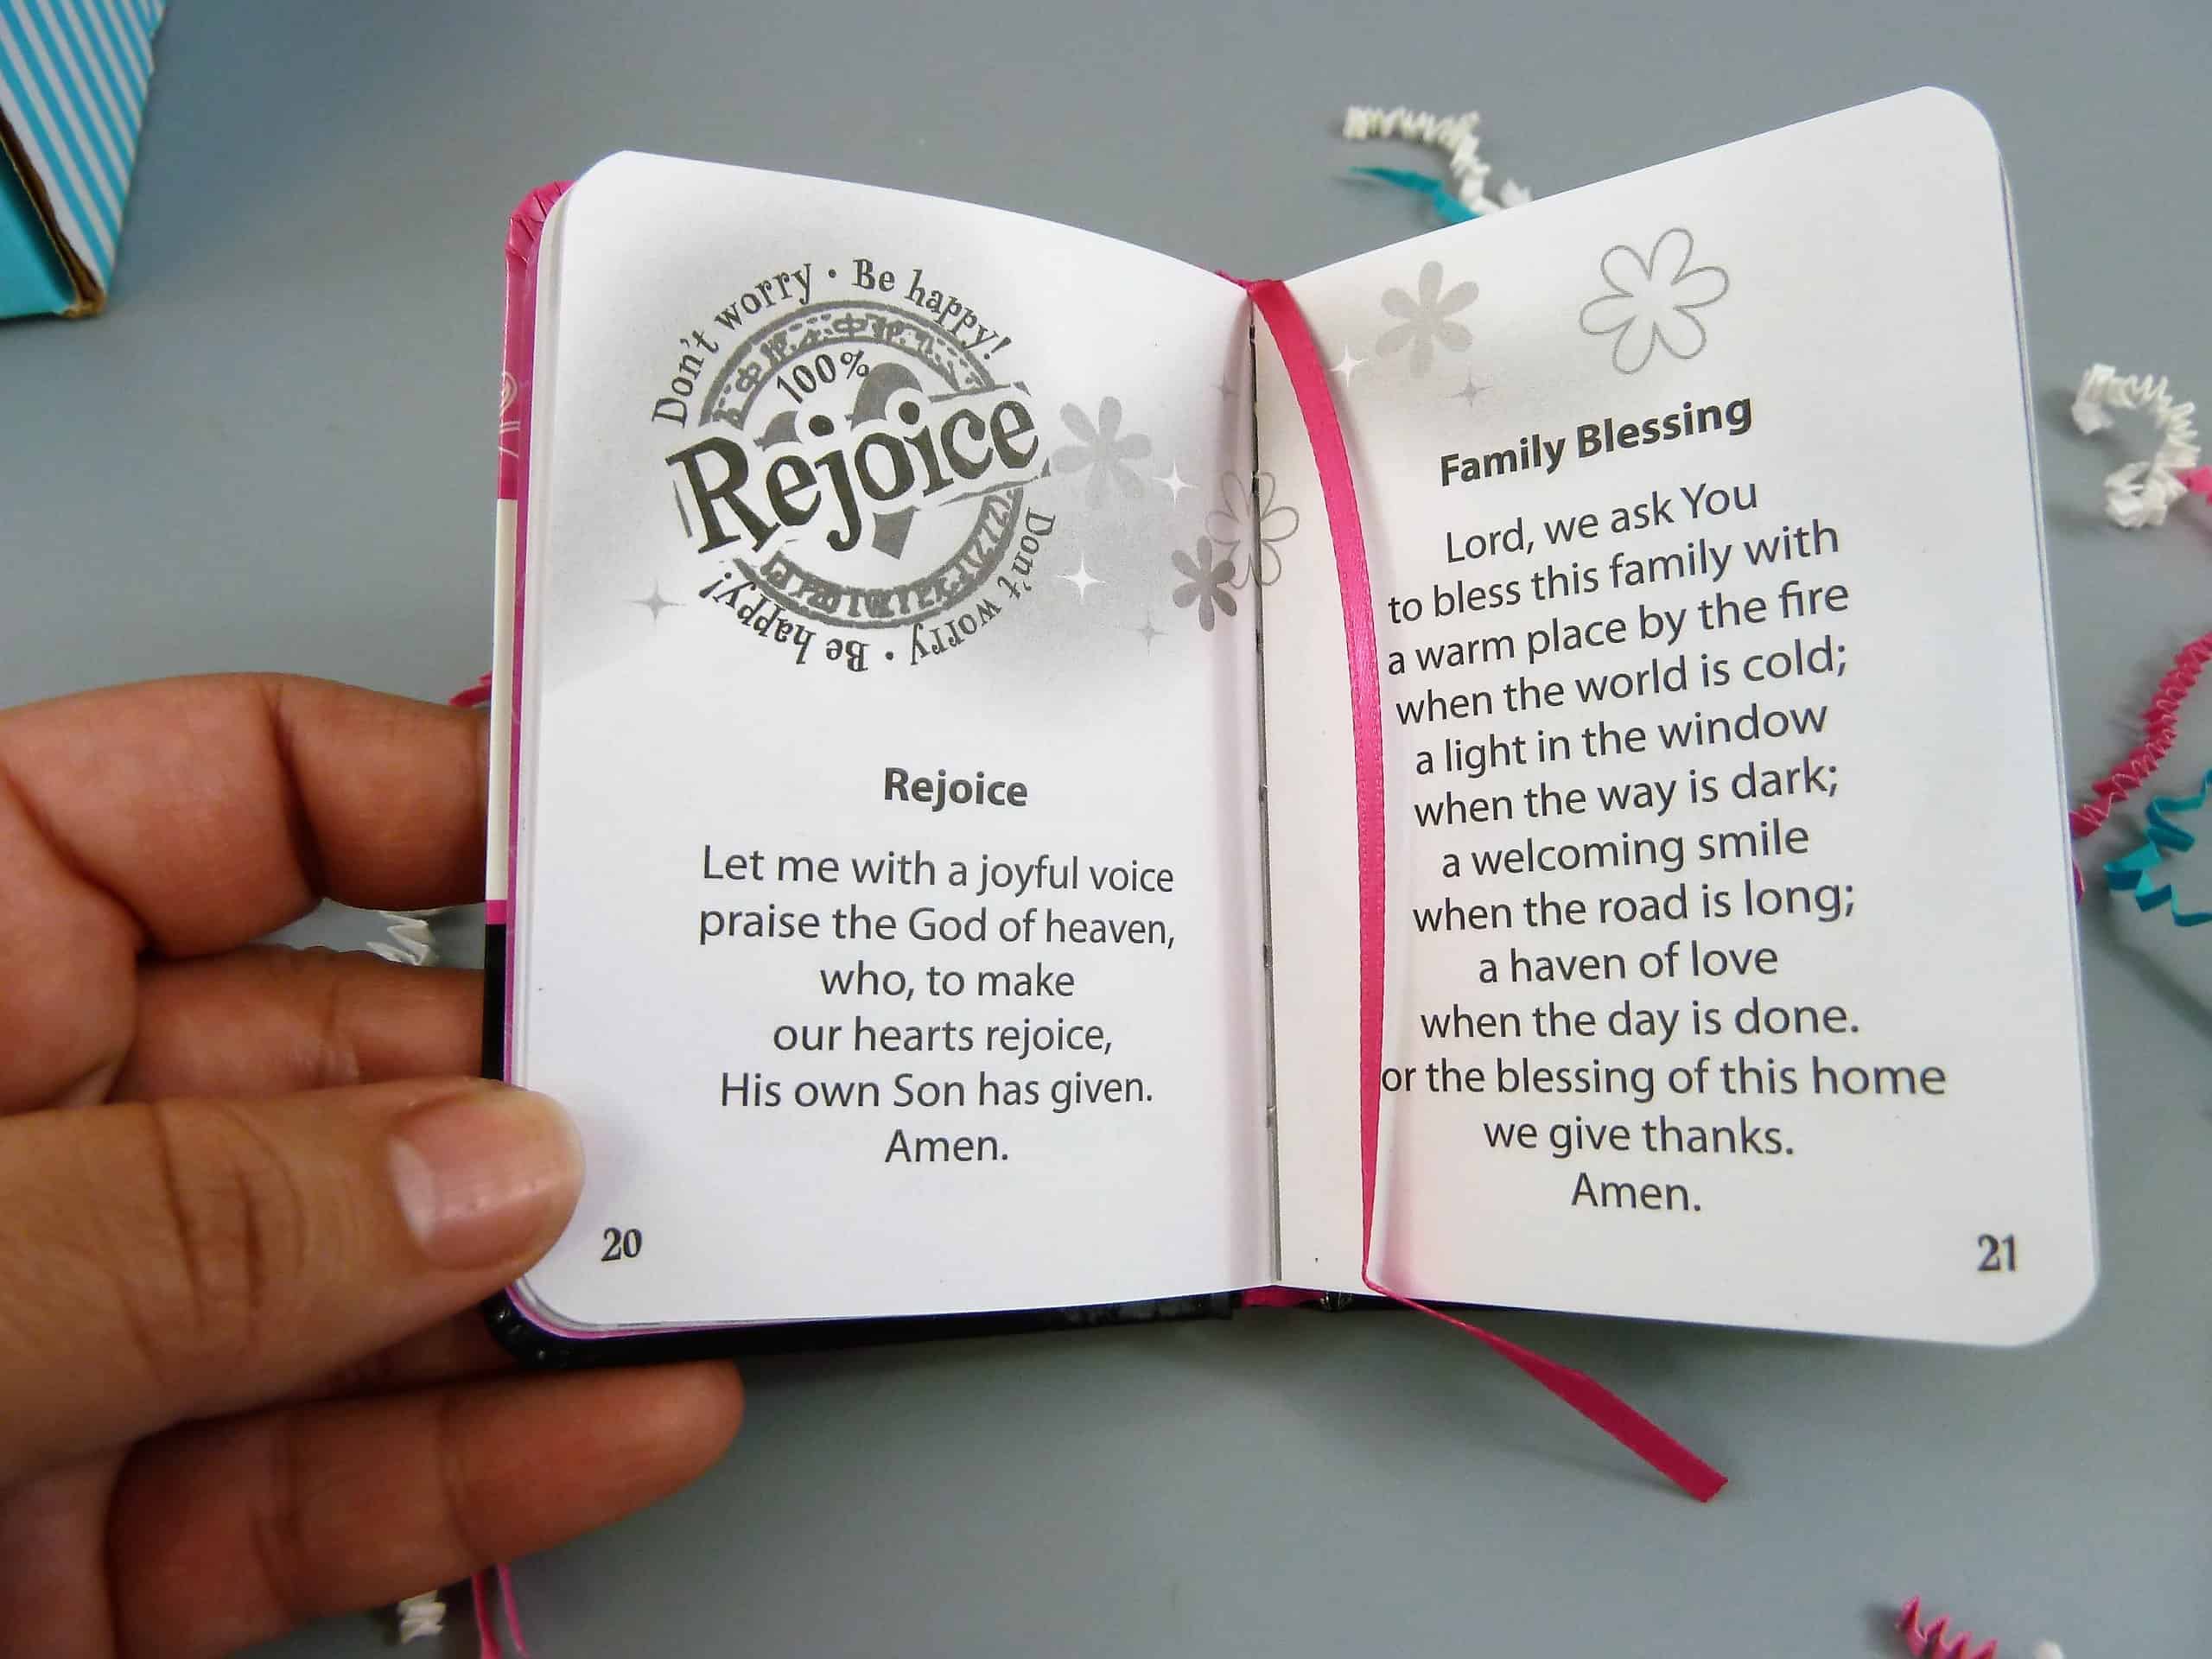 Don't worry · Be happy!
100%
Rejoice
Don't worry · Be happy!
Rejoice
Let me with a joyful voice
praise the God of heaven,
who, to make
our hearts rejoice,
His own Son has given.
Amen.
20
Family Blessing
Lord, we ask You
to bless this family with
a warm place by the fire
when the world is cold;
a light in the window
when the way is dark;
a welcoming smile
when the road is long;
a haven of love
when the day is done.
or the blessing of this home
we give thanks.
Amen.
21